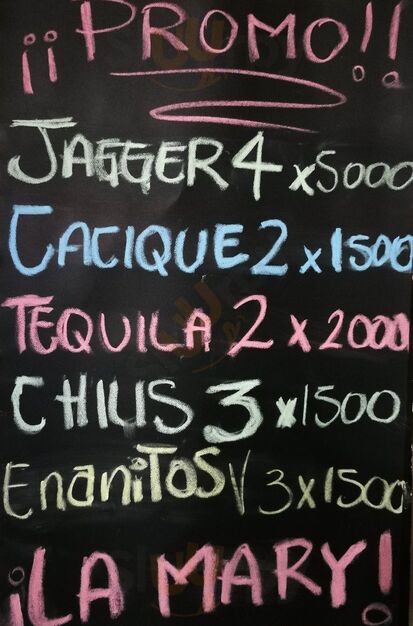 ¡¡PROMO!!
JAGGER 4 x5000
CACIQUE 2 x 1500
TEQUILA 2 x 2000
CHILIS 3 x1500
EnaniTOS V 3 x1500
¡LA MARY!